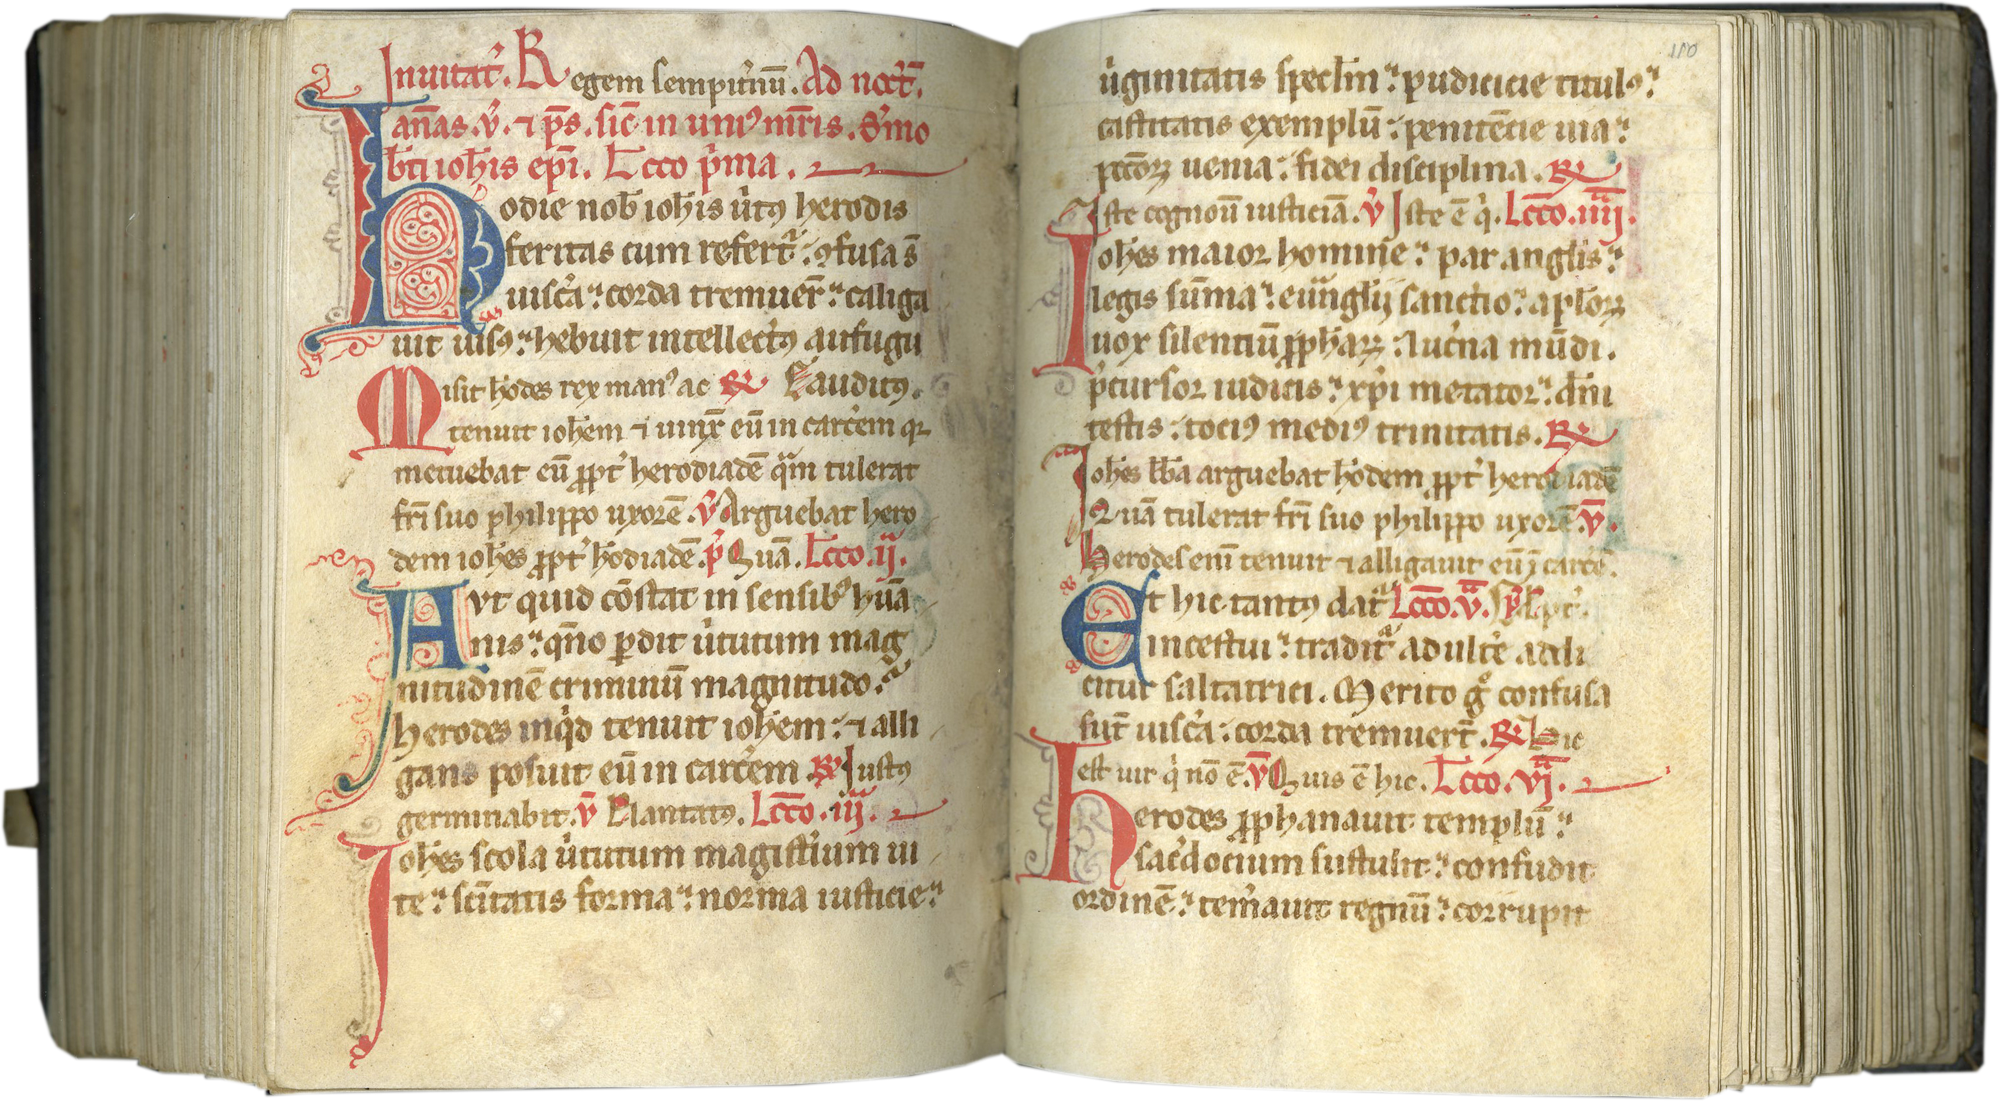 Inuitat᷒. Regem sempit᷒nū. Ad noct̄.
an̄as. v᷒. ⁊ p̄s. sic̄ in uniꝰ mr̄is. S᷒mo
bt̄i ioh̄is ep̄i. Lc̄co p᷒ma.
hodie nob̄ ioh̄is u᷒tꝰ herodis
feritas cum refert᷒ : ꝯfusa s̄
uisc᷒a : corda tremuer̄ : caliga
uit uisꝰ : hebuit intellectꝰ aufugit
Misit h᷒odes rex manꝰ ac ℞ auditꝰ.
tenuit ioh̄em ⁊ uinx᷒ eū in carc᷒em qꝛ
metuebat eū ꝓpt᷒ herodiadē quam tulerat
fr̄i suo philippo uxorē. v᷒ Arguebat hero
dem ioh̄es ꝓpt᷒ h᷒odiadē. p᷒ Quā. Lc̄co .ii.
Aut quid cōstat in sensibꝰ hūa
nis : qn̄o ꝑdit u᷒tutum mag
nitudinē criminū magnitudo.
herodes inq᷒d tenuit ioh̄em : ⁊ alli
gans posuit eū in carc᷒em ℞ Iustꝰ
germinabit. v̄ Plantatꝰ. Lc̄co .iii.
Ioh̄es scola u᷒tutum magist᷒ium ui
te : sc̄itatis forma : norma iusticie :
u᷒ginitatis specl̄m : pudicicie titulꝰ :
castitatis exemplū : penitēcie uia :
pc̄c̄oꝝ uenia : fidei disciplina. ℞
Iste cognouit iusticiā. v᷒ Iste ē q᷒. Lc̄co .iiii.
Ioh̄es maior homine : par anglis :
legis sūma : euangl̄ij sanctio : apl̄oꝝ
uox silentiū ꝓphaꝝ : luc᷒na mūdi.
p᷒cursor iudicis : xp̄i metator : dn̄i
testis : tociꝰ mediꝰ trinitatis. ℞
Ioh̄es bb̄a arguebat h᷒odem ꝓpt᷒ herodiadē
Quā tulerat fr̄i suo philippo uxorē. v̄.
Herodes enī tenuit ⁊ alligauit eū ī carcē.
Et hic tantꝰ dat᷒ Lc̄co .v.
incestui : tradit᷒ adult᷒e addi
citur saltatrici. Merito gͦ confusa
sūt uisc᷒a : corda tremuert̄. ℞ Hic
est uir q᷒ nō ē. v̄ Quis ē hic. Lc̄co .vi.
herodes ꝓphanauit templū :
sac᷒docium sustulit : confudit
ordinē : tem᷒auit regnū : corrupit